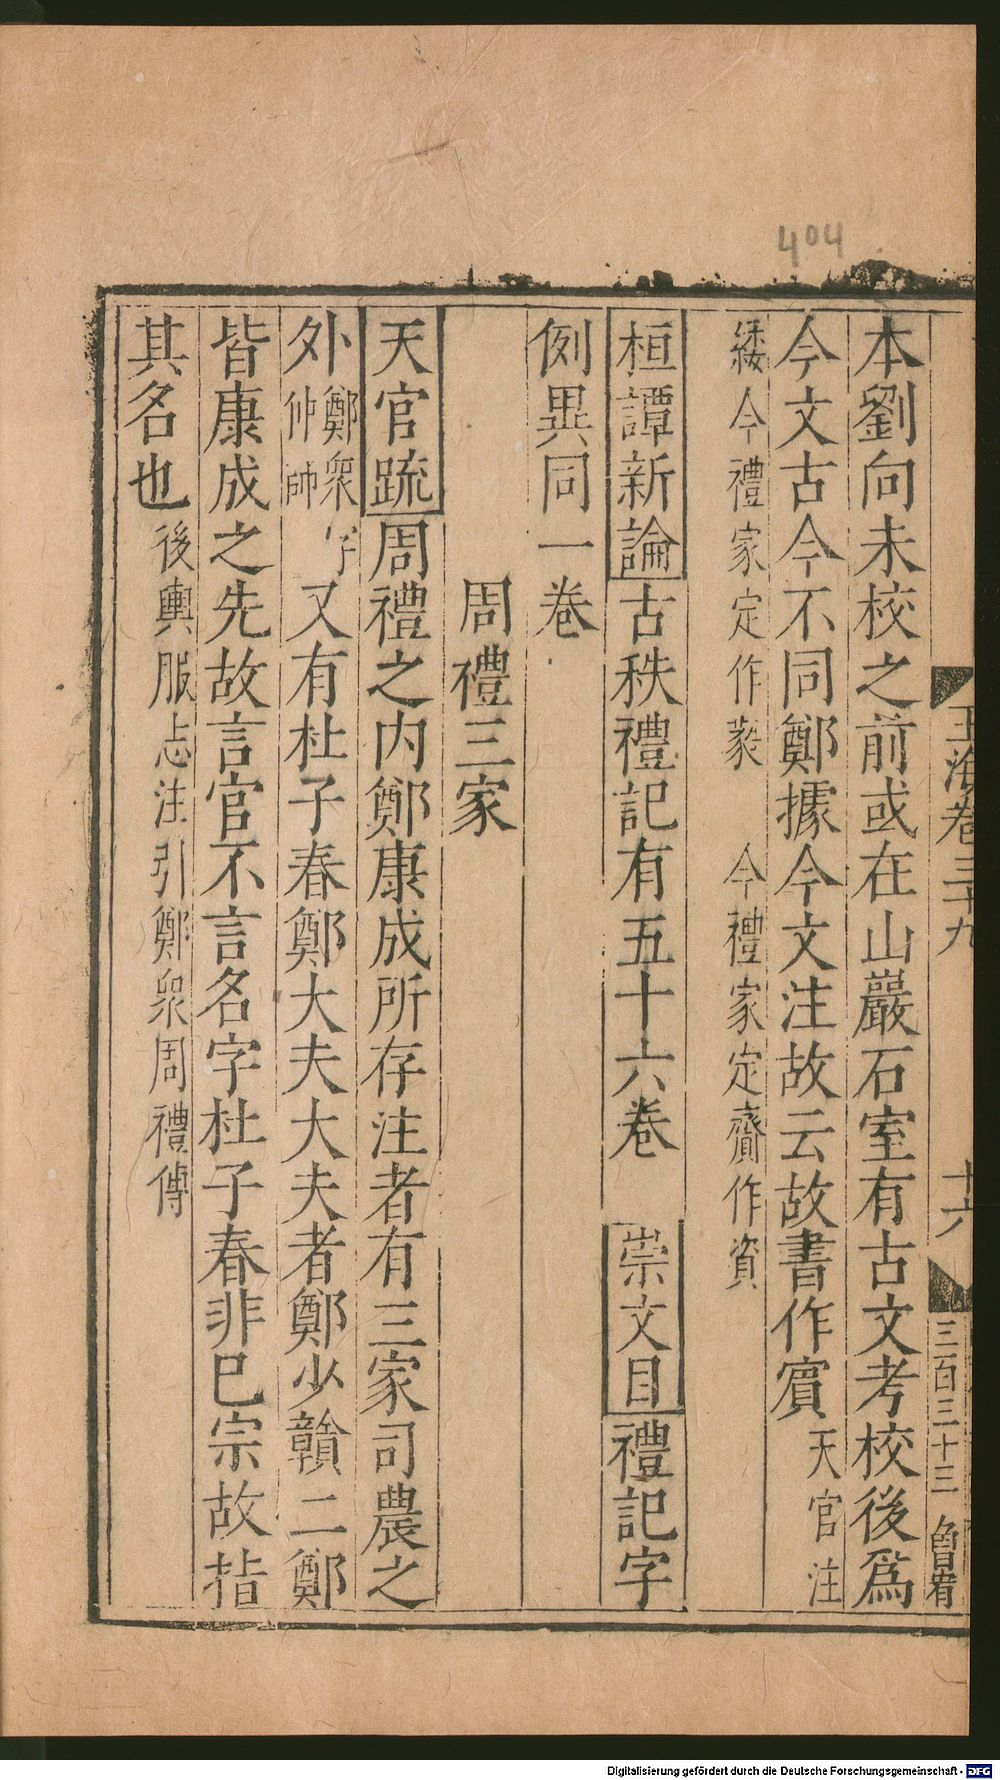 404
玉海卷三十九 十六 三百三十三
本劉向未校之前或在山巖石室有古文考校後爲
今文古今不同鄭據今文注故云故書作賔天官注
綏今禮家定作蕤 今禮家定齎作資
桓譚新論古秩禮記有五十六卷 崇文目禮記字
例異同一卷
周禮三家
天官疏周禮之内鄭康成所存注者有三家司農之
外鄭衆字仲師又有杜子春鄭大夫大夫者鄭少贛二鄭
皆康成之先故言官不言名字杜子春非已宗故指
其名也後輿服志注引鄭衆周禮傳
Digitalisierung gefördert durch die Deutsche Forschungsgemeinschaft - DFG